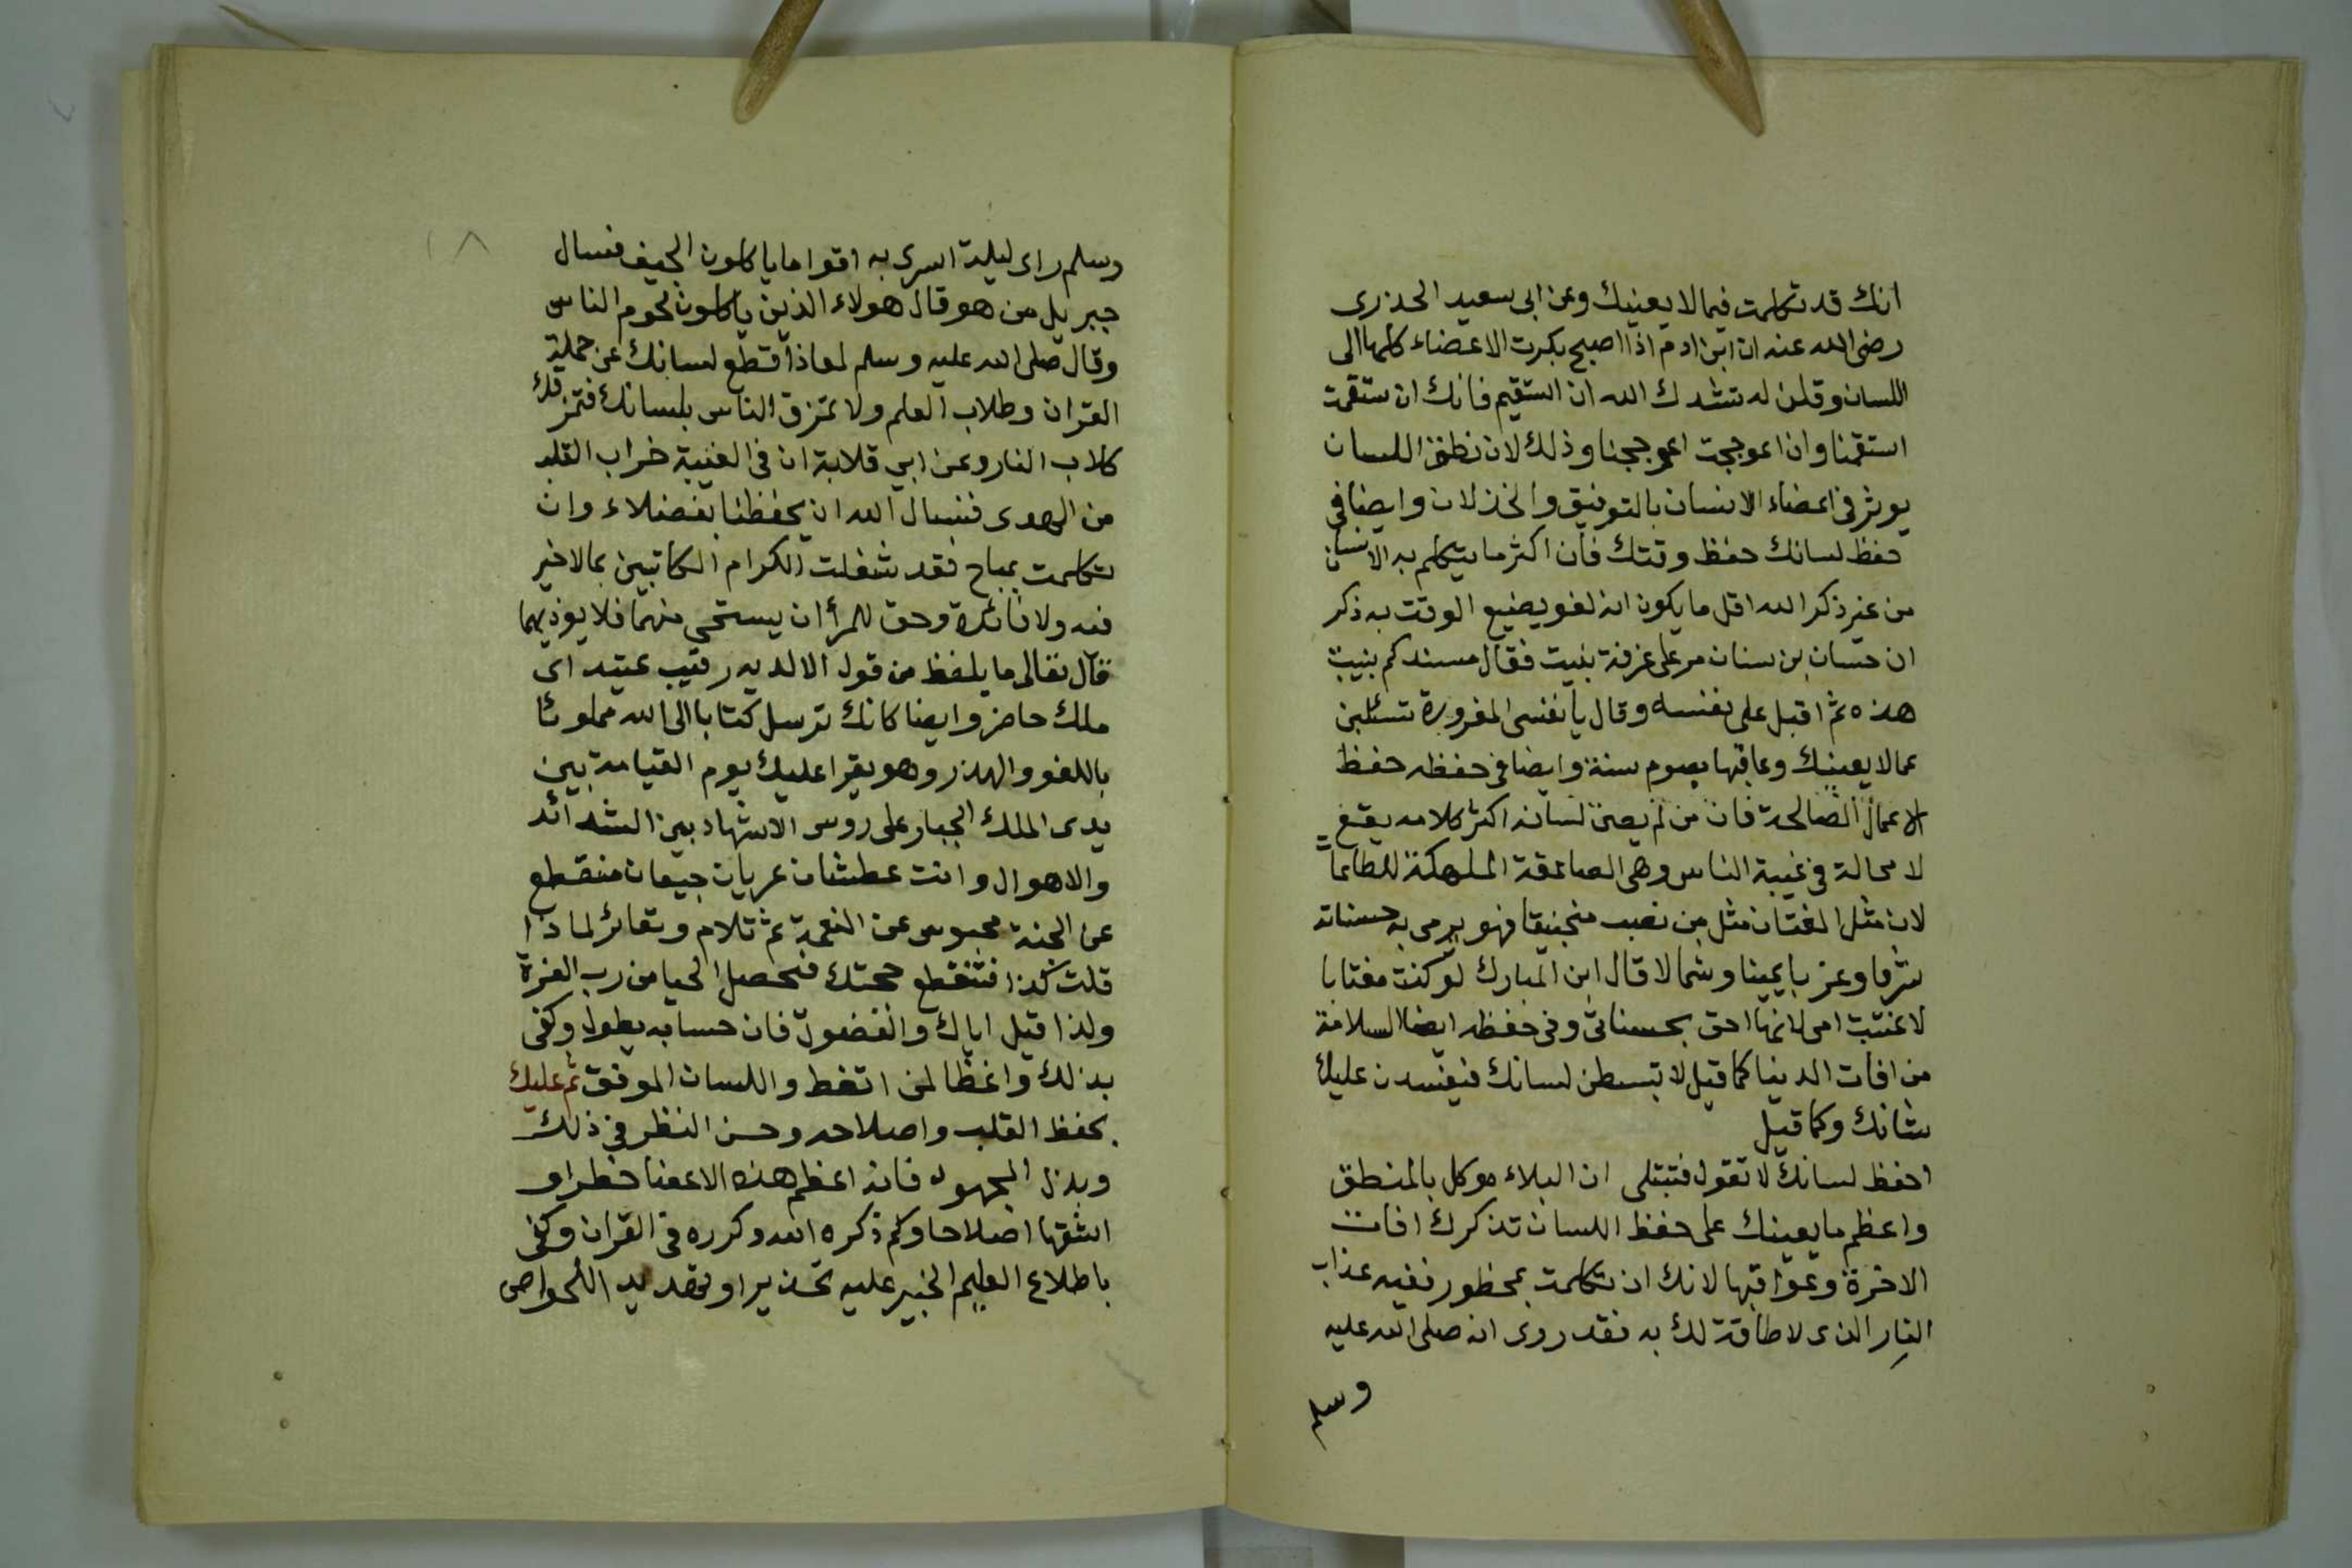 انك قد تكلمت فيما لا يعنيك وعن ابى سعيد الخدرى
رضى الله عنه ان ابن ادم اذا اصبح بكرت الاعضاء كلها الى
اللسان وقلن له ننشدك الله ان استقيم فانك ان ستقمت
استقمنا وان اعوججت اعوججنا وذلك لان نطق اللسان
يوثر فى اعضاء الانسان بالتوفيق والخذلان وايضا فى
حفظ لسانك حفظ وقتك فان اكثر ما يتكلم به الانسان
من غير ذكر الله اقل ما يكون انه لغو يضيع الوقت به ذكر
ان حسان بن سنان مر على غرفة بنيت فقال مسندكم بنيت
هذه ثم اقبل على نفسه وقال يا نفسى المغرورة تسئلين
عما لا يعينك وعاقبها بصوم سنة وايضا فى حفظه حفظ
الاعمال الصالحة فان من لم يصن لسانه اكثر كلامه يقع
لا محالة فى غيبة الناس وهى الصاعقة المهلكة للطاعات
لان مثل المغتاب مثل من نصب منجنيقا فهو يرمى به حسناته
شرقا وغربا يمينا وشمالا قال ابن المبارك لو كنت مغتابا
لاغتبت امى لانها احق بحسناتى وفى حفظه ايضا السلامة
من افات الدنيا كما قيل لا تبسطن لسانك فيفسدن عليك
شانك وكما قيل
احفظ لسانك لا تقول فتبتلى ان البلاء موكل بالمنطق
واعظم ما يعينك على حفظ اللسان تذكرك افات
الاخرة وعواقبها لانك ان تكلمت بمحظور ففيه عذاب
النار الذى لا طاقة لك به فقد روى انه صلى الله عليه
وسلم
وسلم راى ليلة اسرى به اقواما ياكلون الجيف فسال
جبريل من هو قال هولاء الذين ياكلون لحوم الناس
وقال صلى الله عليه وسلم لمعاذ اقطع لسانك عن حملة
القران وطلاب العلم ولا تمزق الناس بلسانك فتمزقك
كلاب النار وعن ابي قلابة ان فى الغيبة خراب القلب
من الهدى فنسال الله ان يحفظنا بفضله وان
تكلمت بمباح فقد شغلت الكرام الكاتبين بمالا خير
فيه ولا فائدة وحق للمرأ ان يستحى منهما فلا يوذيهما
قال تعالى ما يلفظ من قول الا لديه رقيب عتيد اى
ملك حاضر وايضا كانك ترسل كتابا الى الله مملوئا
باللغو والهذر وهو يقرا عليك يوم القيامة بين
يدى الملك الجبار على روس الاشهاد بين الشدائد
والاهوال وانت عطشان عريان جيعان منقطع
عن الجنة محبوس عن النعمة ثم تلام وتعائر لماذا
قلت كذا فتنقطع حجتك فيحصل الحيا من رب العزة
ولذا قيل اياك والفضول فان حسابه يطول وكفى
بذلك واعظا لمن اتعظ والله سبحانه الموفق ثم عليك
بحفظ القلب واصلاحه وحسن النظر فى ذلك
وبذل المجهود فانه اعظم هذه الاعضا خطرا و
اشقها اصلاحا وكم ذكره الله وكرره فى القران وكفى
باطلاع العليم الخبير عليه تحذيرا وتهديد للخواص